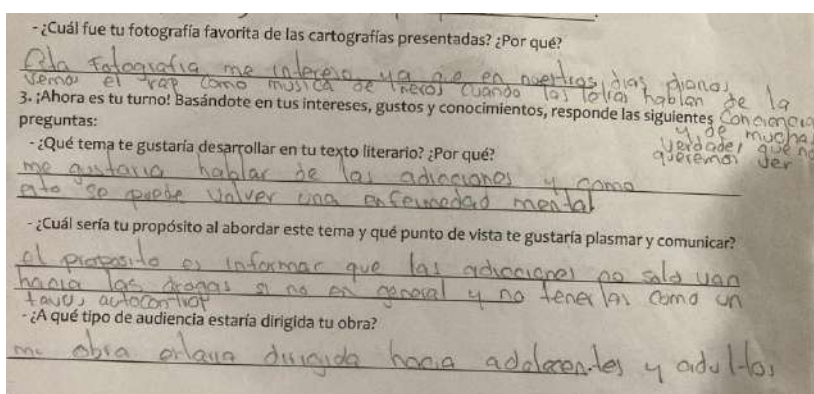 - ¿Cuál fue tu fotografía favorita de las cartografías presentadas? ¿Por qué?
la Fotografia me intereso ya que en nuestros dias diarios
vemos el rap como musica de ñeros cuando las letras hablan de la
conciencia
y de mucha
verdades que no
queremos ver
3. ¡Ahora es tu turno! Basándote en tus intereses, gustos y conocimientos, responde las siguientes
preguntas:
- ¿Qué tema te gustaría desarrollar en tu texto literario? ¿Por qué?
me gustaria hablar de las adicciones y como
esto se puede volver una enfermedad mental
- ¿Cuál sería tu propósito al abordar este tema y qué punto de vista te gustaría plasmar y comunicar?
el proposito es informar que las adicciones no solo van
hacia las drogas si no en general y no tenerlas como un
autocontrol
- ¿A qué tipo de audiencia estaría dirigida tu obra?
mi obra dirigida hacia adolecentes y adultos